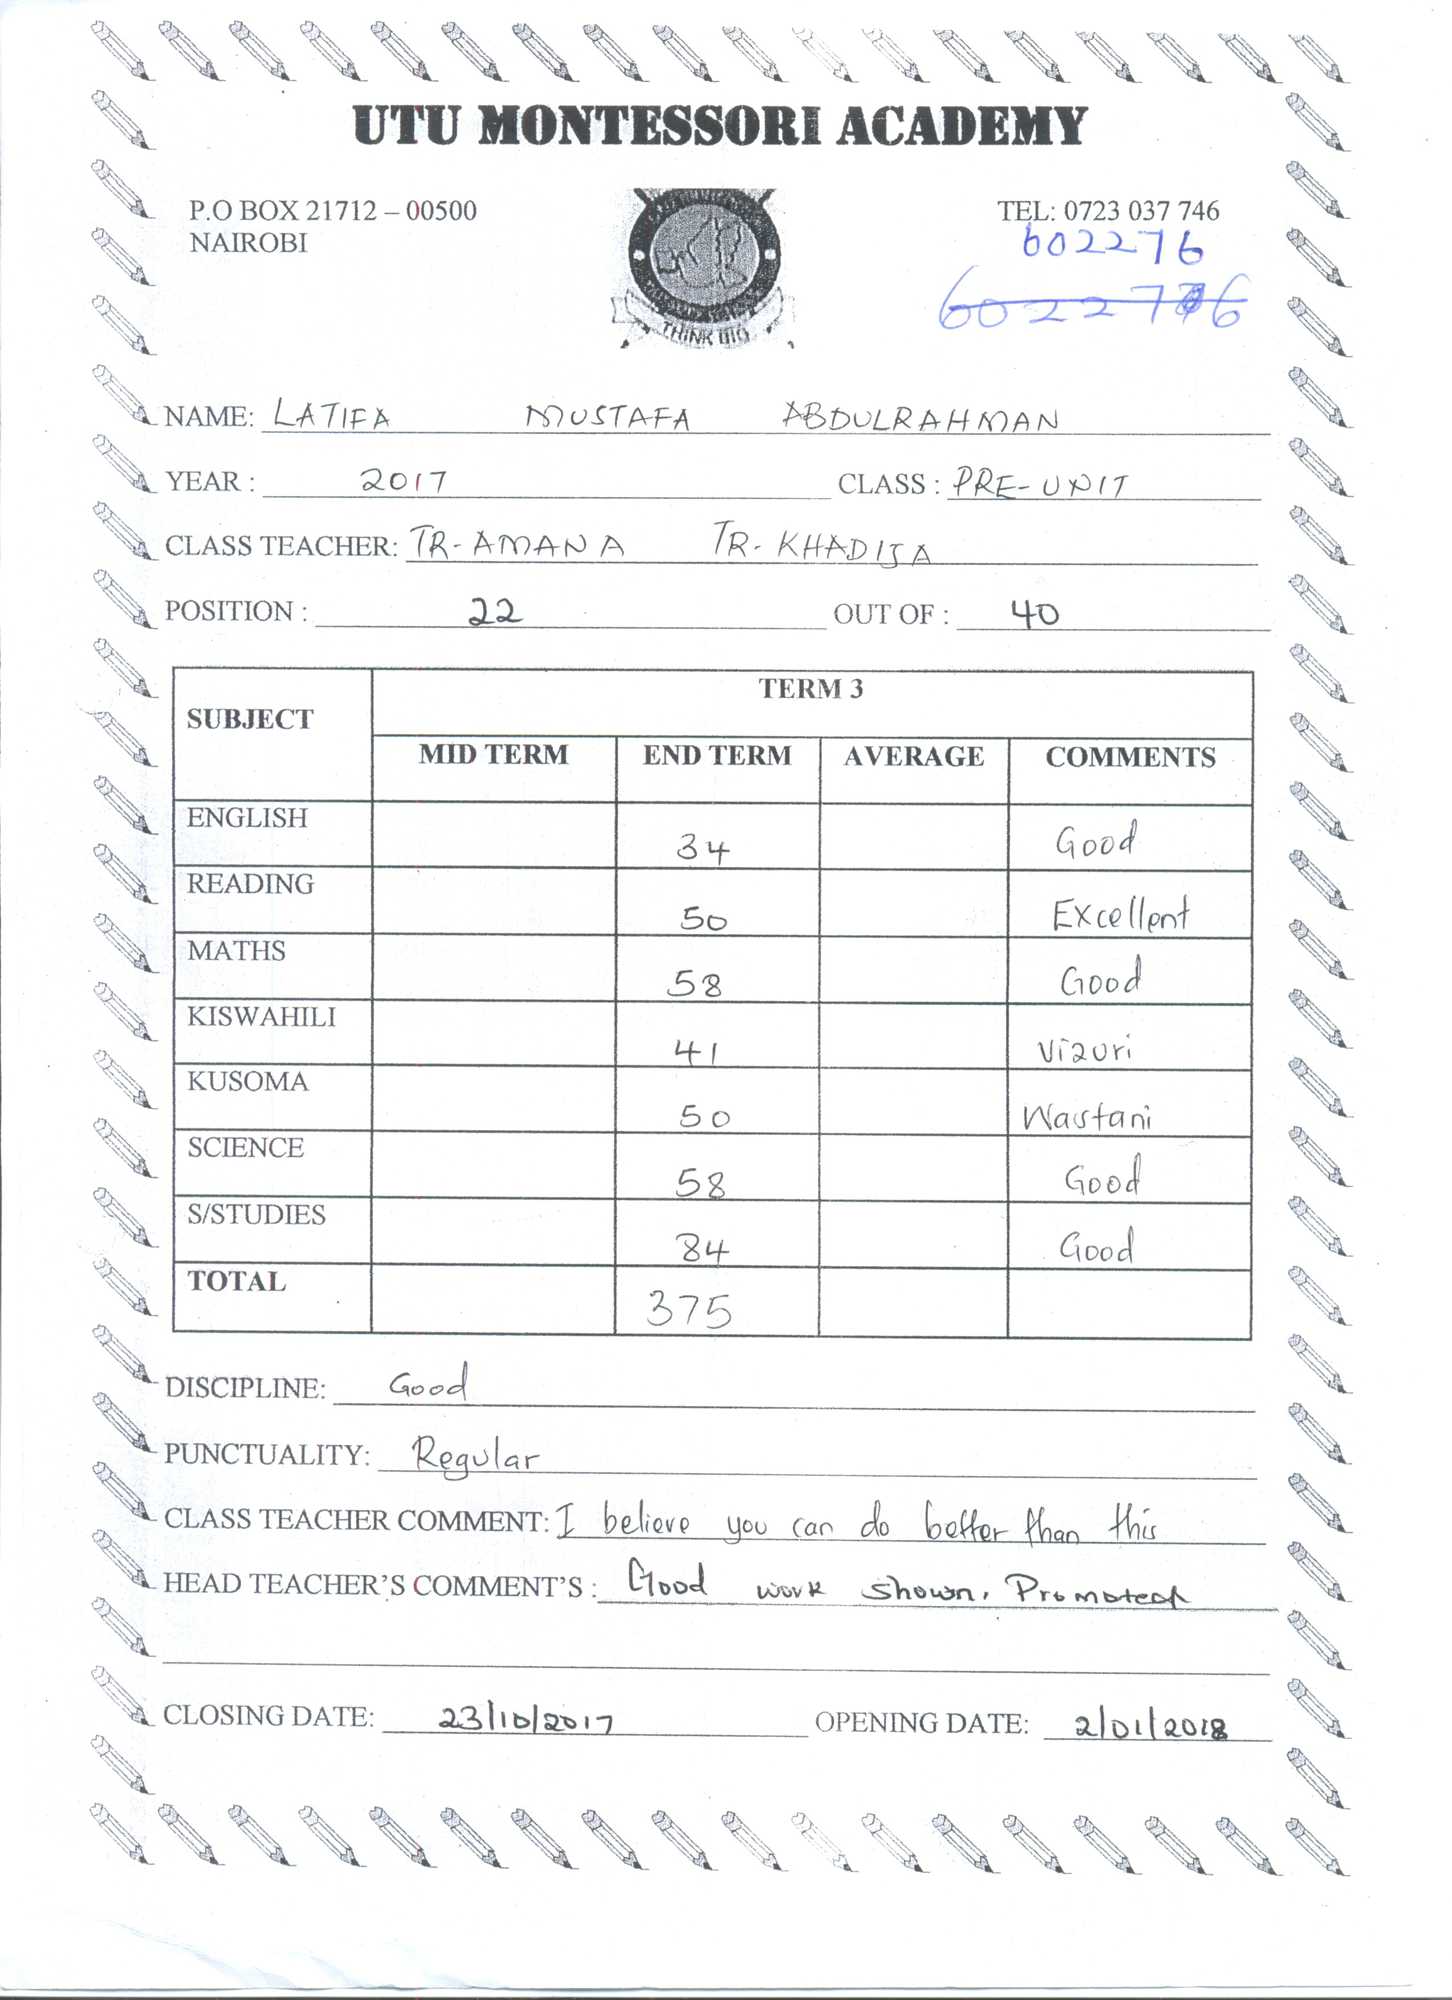 UTU MONTESSORI ACADEMY
P.O BOX 21712 – 00500
NAIROBI
TEL: 0723 037 746
602276
THINK BIG
NAME: LATIFA MUSTAFA ABDULRAHMAN
YEAR : 2017 CLASS : PRE-UNIT
CLASS TEACHER: TR-AMANA TR-KHADIJA
POSITION : 22 OUT OF : 40
SUBJECT TERM 3
MID TERM END TERM AVERAGE COMMENTS
ENGLISH 34 Good
READING 50 Excellent
MATHS 58 Good
KISWAHILI 41 Vizuri
KUSOMA 50 Wastani
SCIENCE 58 Good
S/STUDIES 84 Good
TOTAL 375
DISCIPLINE: Good
PUNCTUALITY: Regular
CLASS TEACHER COMMENT: I believe you can do better than this
HEAD TEACHER'S COMMENT'S : Good work shown. Promoted
CLOSING DATE: 23/10/2017 OPENING DATE: 2/01/2018